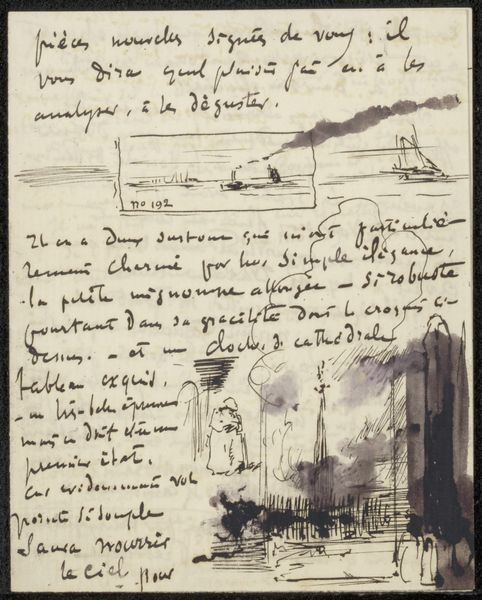 pièces nouvelles signées de vous : il
vous dira quel plaisir j'ai eu à les
analyser, à les déguster.
no 192
Il en a deux surtout qui m'ont particuliè-
rement charmé par leur simple élégance,
la petite mignonne allongée - si robuste
pourtant dans sa gracilité dont le croquis ci-
dessus. - et un clocher de cathédrale
tableau exquis.
- un très-belle épreuve
mais ce doit être un
premier état.
car évidemment votre
pointe si souple
saura nourrir
le ciel pour